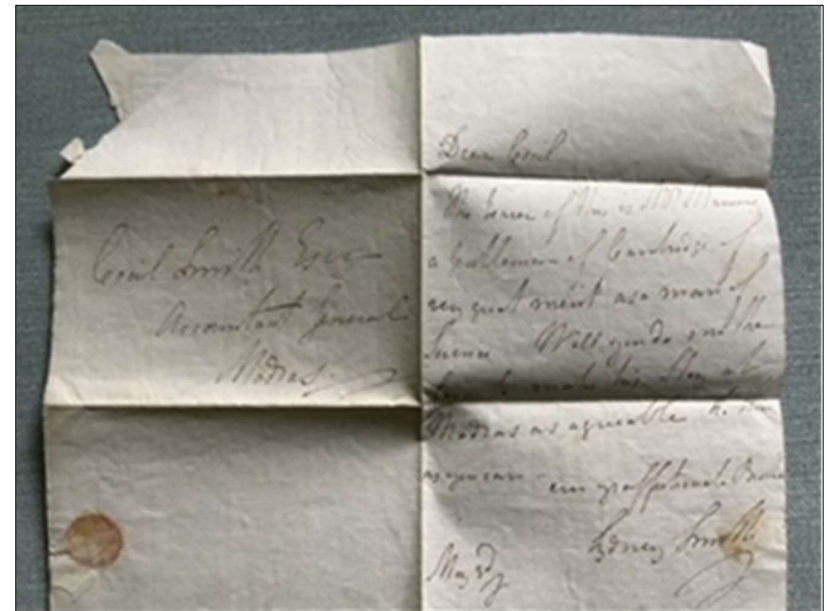 Cecil Smith Esqr
Accountant General
Madras
Dear Cecil
The bearer of this is Mr Manning
a gentleman of Cambridge of
very great merit as a man of
Science Will you do me the
favor to make his stay at
Madras as agreable to him
as you can ever yr affectionate Brother
Sydney Smith
May 3d